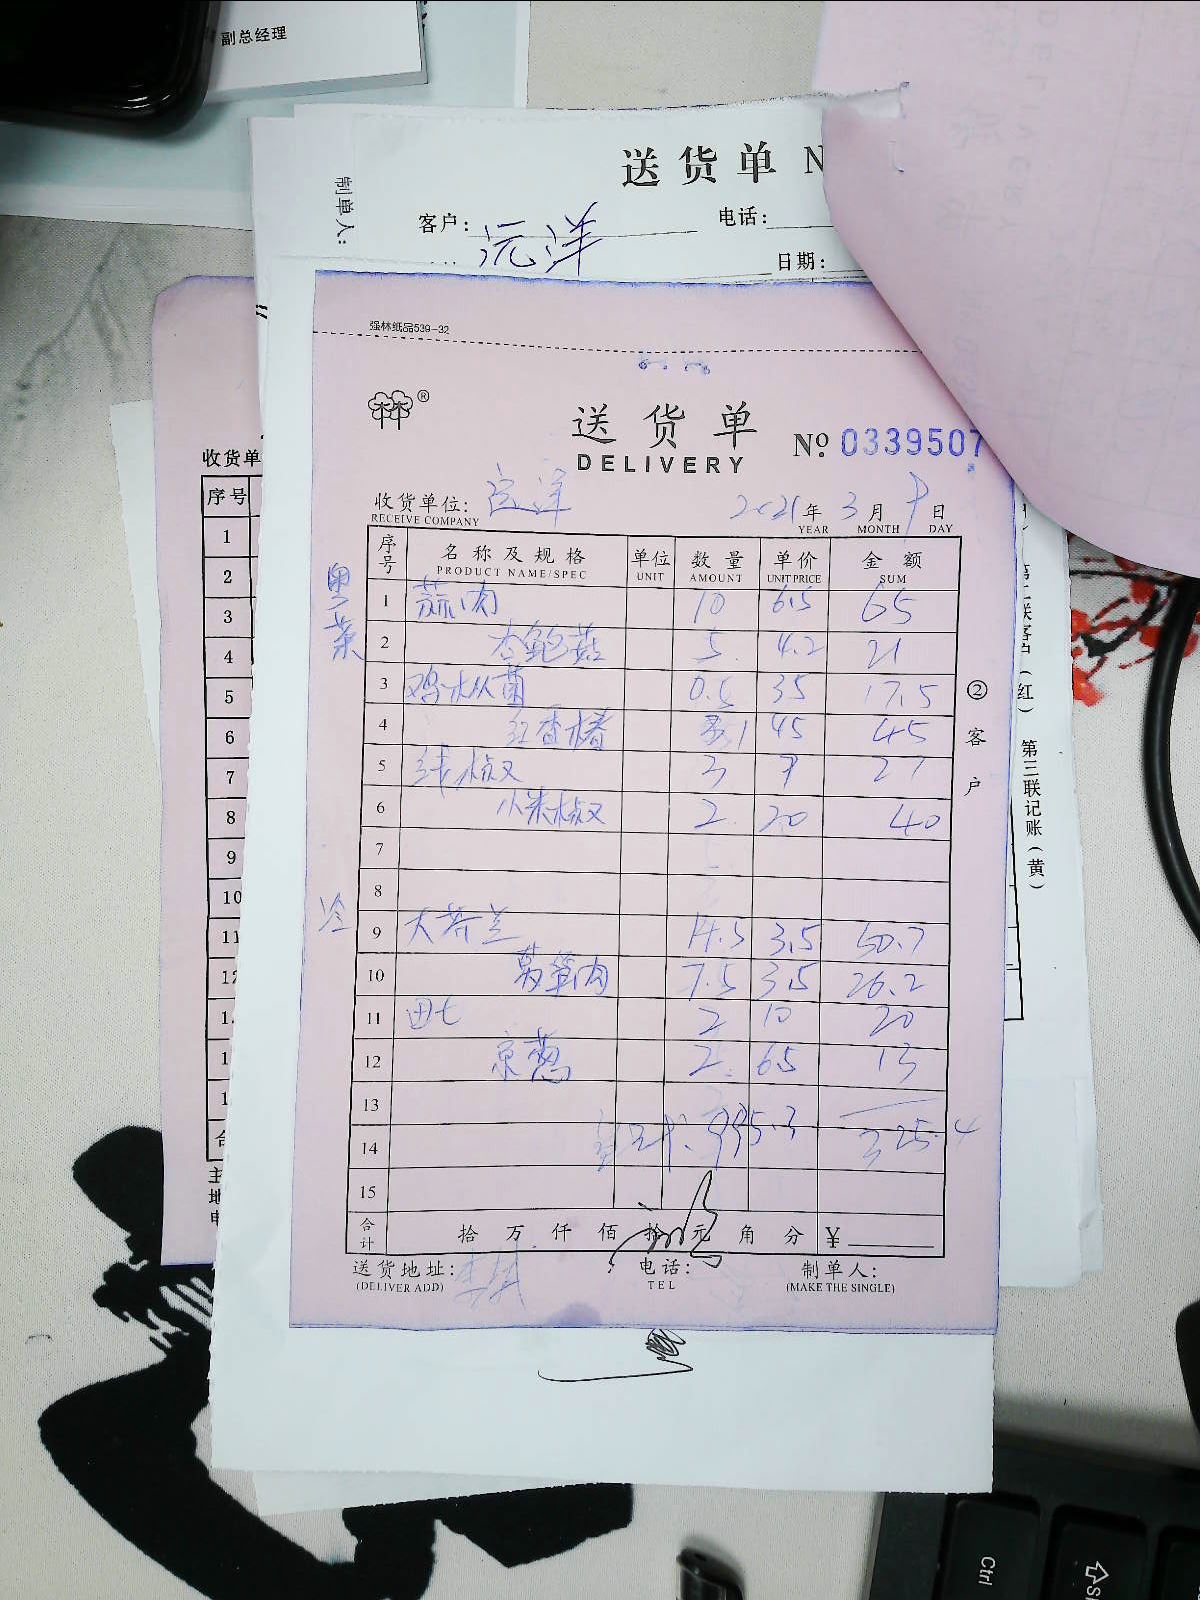 副总经理
送货单 N
制单人：
客户：沅洋 电话：
日期：
强林纸品539-32
®
送货单
DELIVERY
№ 0339507
收货单位：
RECEIVE COMPANY
2021年 3月 9日
YEAR MONTH DAY
序号 名称及规格 单位 数量 单价 金额
PRODUCT NAME/SPEC UNIT AMOUNT UNIT PRICE SUM
粤菜
1 蒜肉 10 6.5 65
2 杏鲍菇 5 4.2 21
3 鸡枞菌 0.5 35 17.5
4 红香椿 1 45 45
5 线椒 3 9 27
6 小米椒 2 20 40
7
8
冷
9 大芥兰 14.5 3.5 50.7
10 莴笋肉 7.5 3.5 26.2
11 田七 2 10 20
12 京葱 2 6.5 13
13
14 325.4
15
合计 拾 万 仟 佰 拾 元 角 分 ￥
送货地址：
(DELIVER ADD)
电话：
TEL
制单人：
(MAKE THE SINGLE)
② 客户
收货单
序号
1
2
3
4
5
6
7
8
9
10
11
(红)
第三联记账(黄)
Ctrl